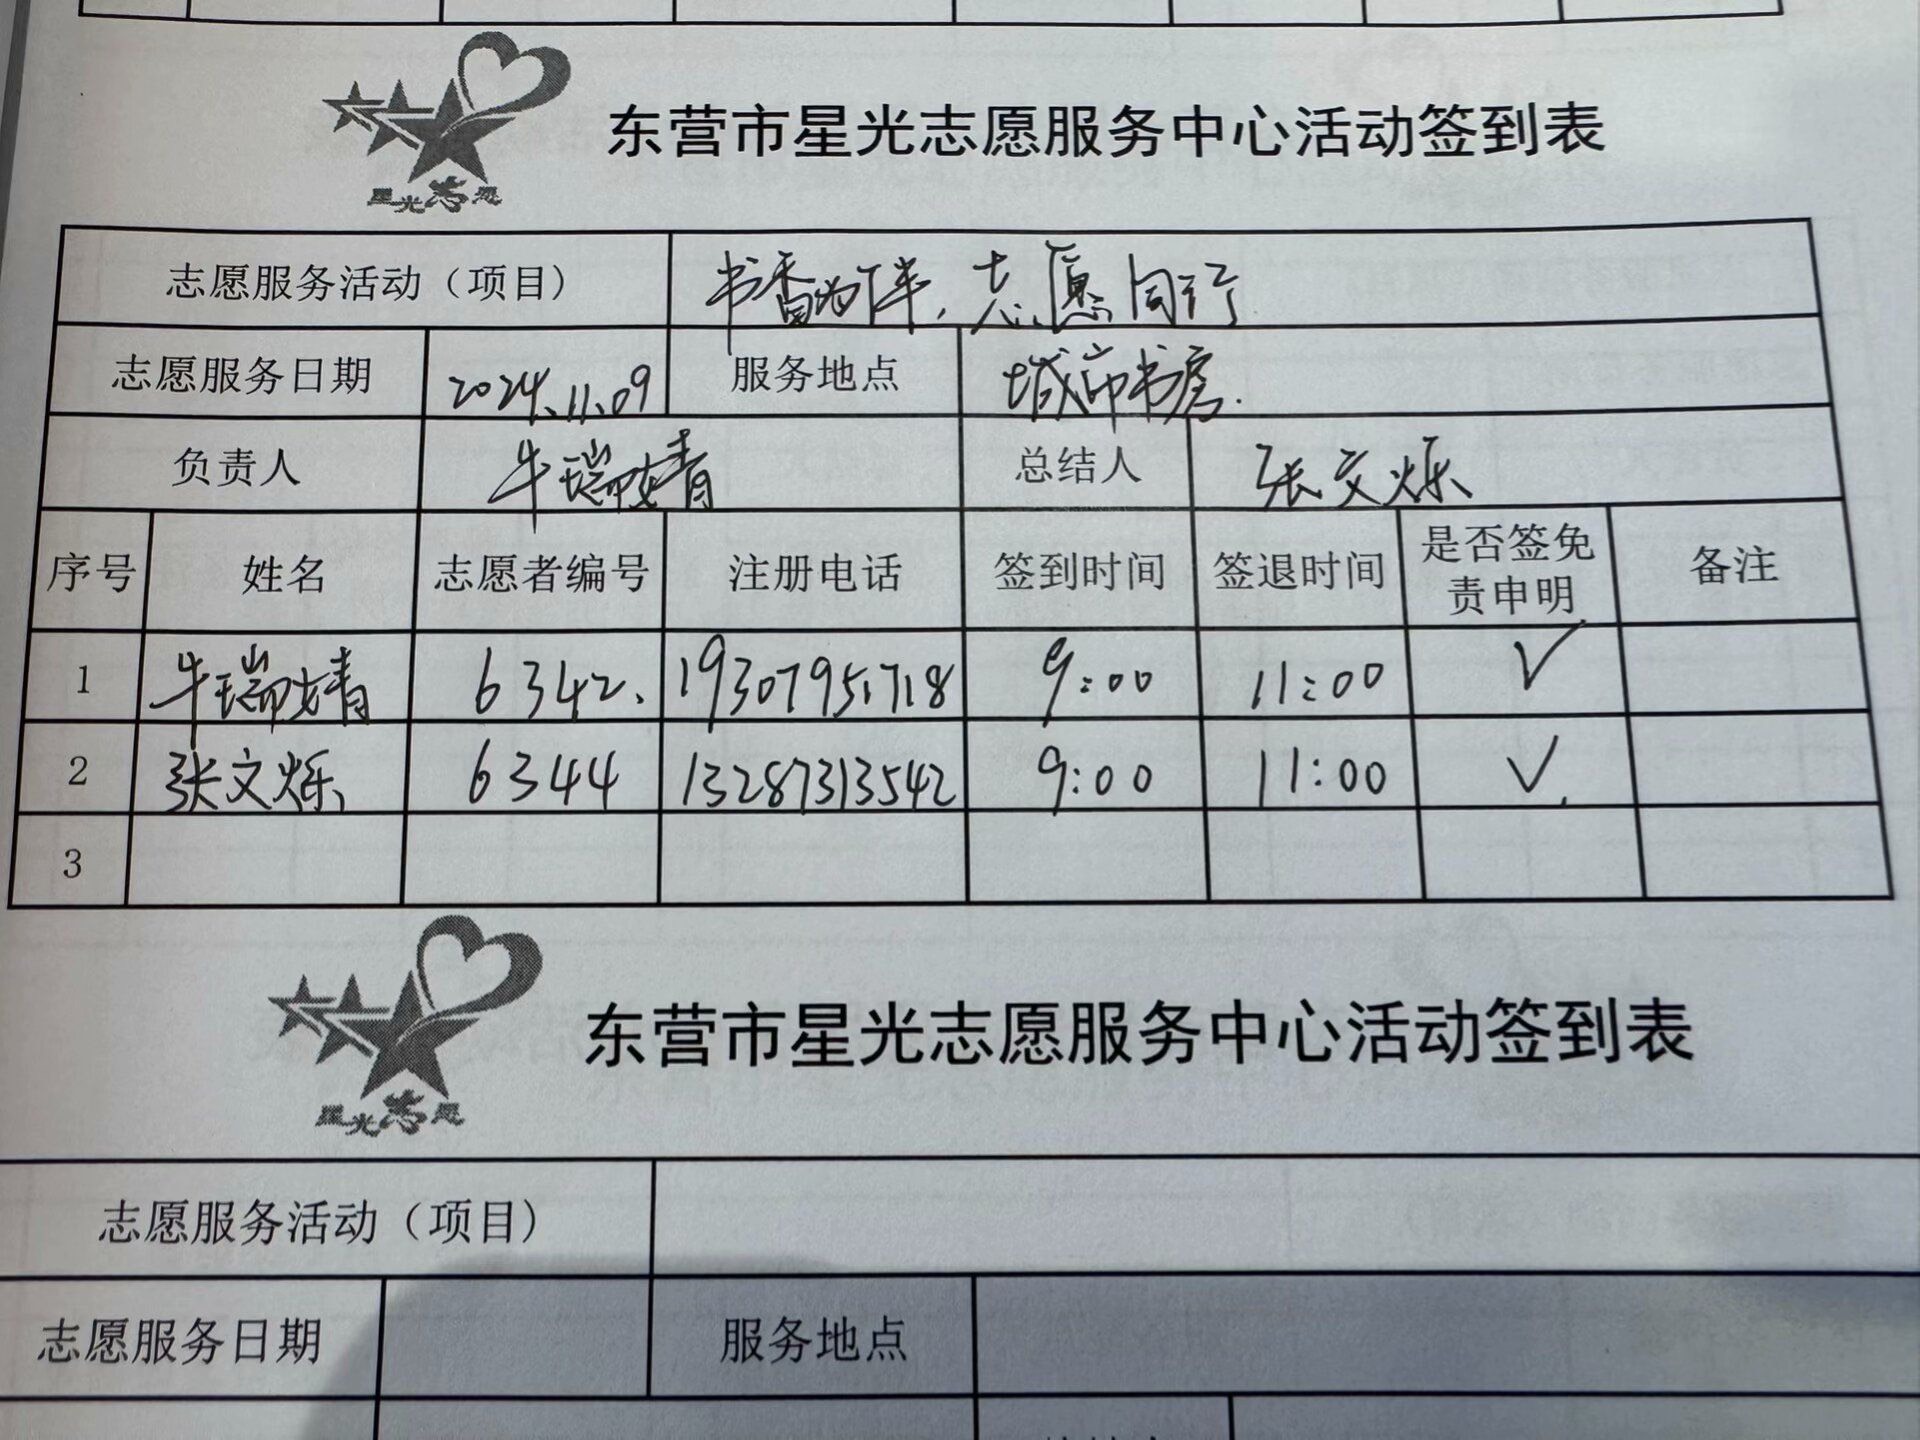 星光志愿
东营市星光志愿服务中心活动签到表
志愿服务活动（项目） 书香为伴，志愿同行
志愿服务日期 2024.11.09 服务地点 城市书房.
负责人 牛瑞婧 总结人 张文烁
序号 姓名 志愿者编号 注册电话 签到时间 签退时间 是否签免责申明 备注
1 牛瑞婧 6342. 19307951718 9:00 11:00 √
2 张文烁 6344 13287313542 9:00 11:00 √
3
星光志愿
东营市星光志愿服务中心活动签到表
志愿服务活动（项目）
志愿服务日期 服务地点